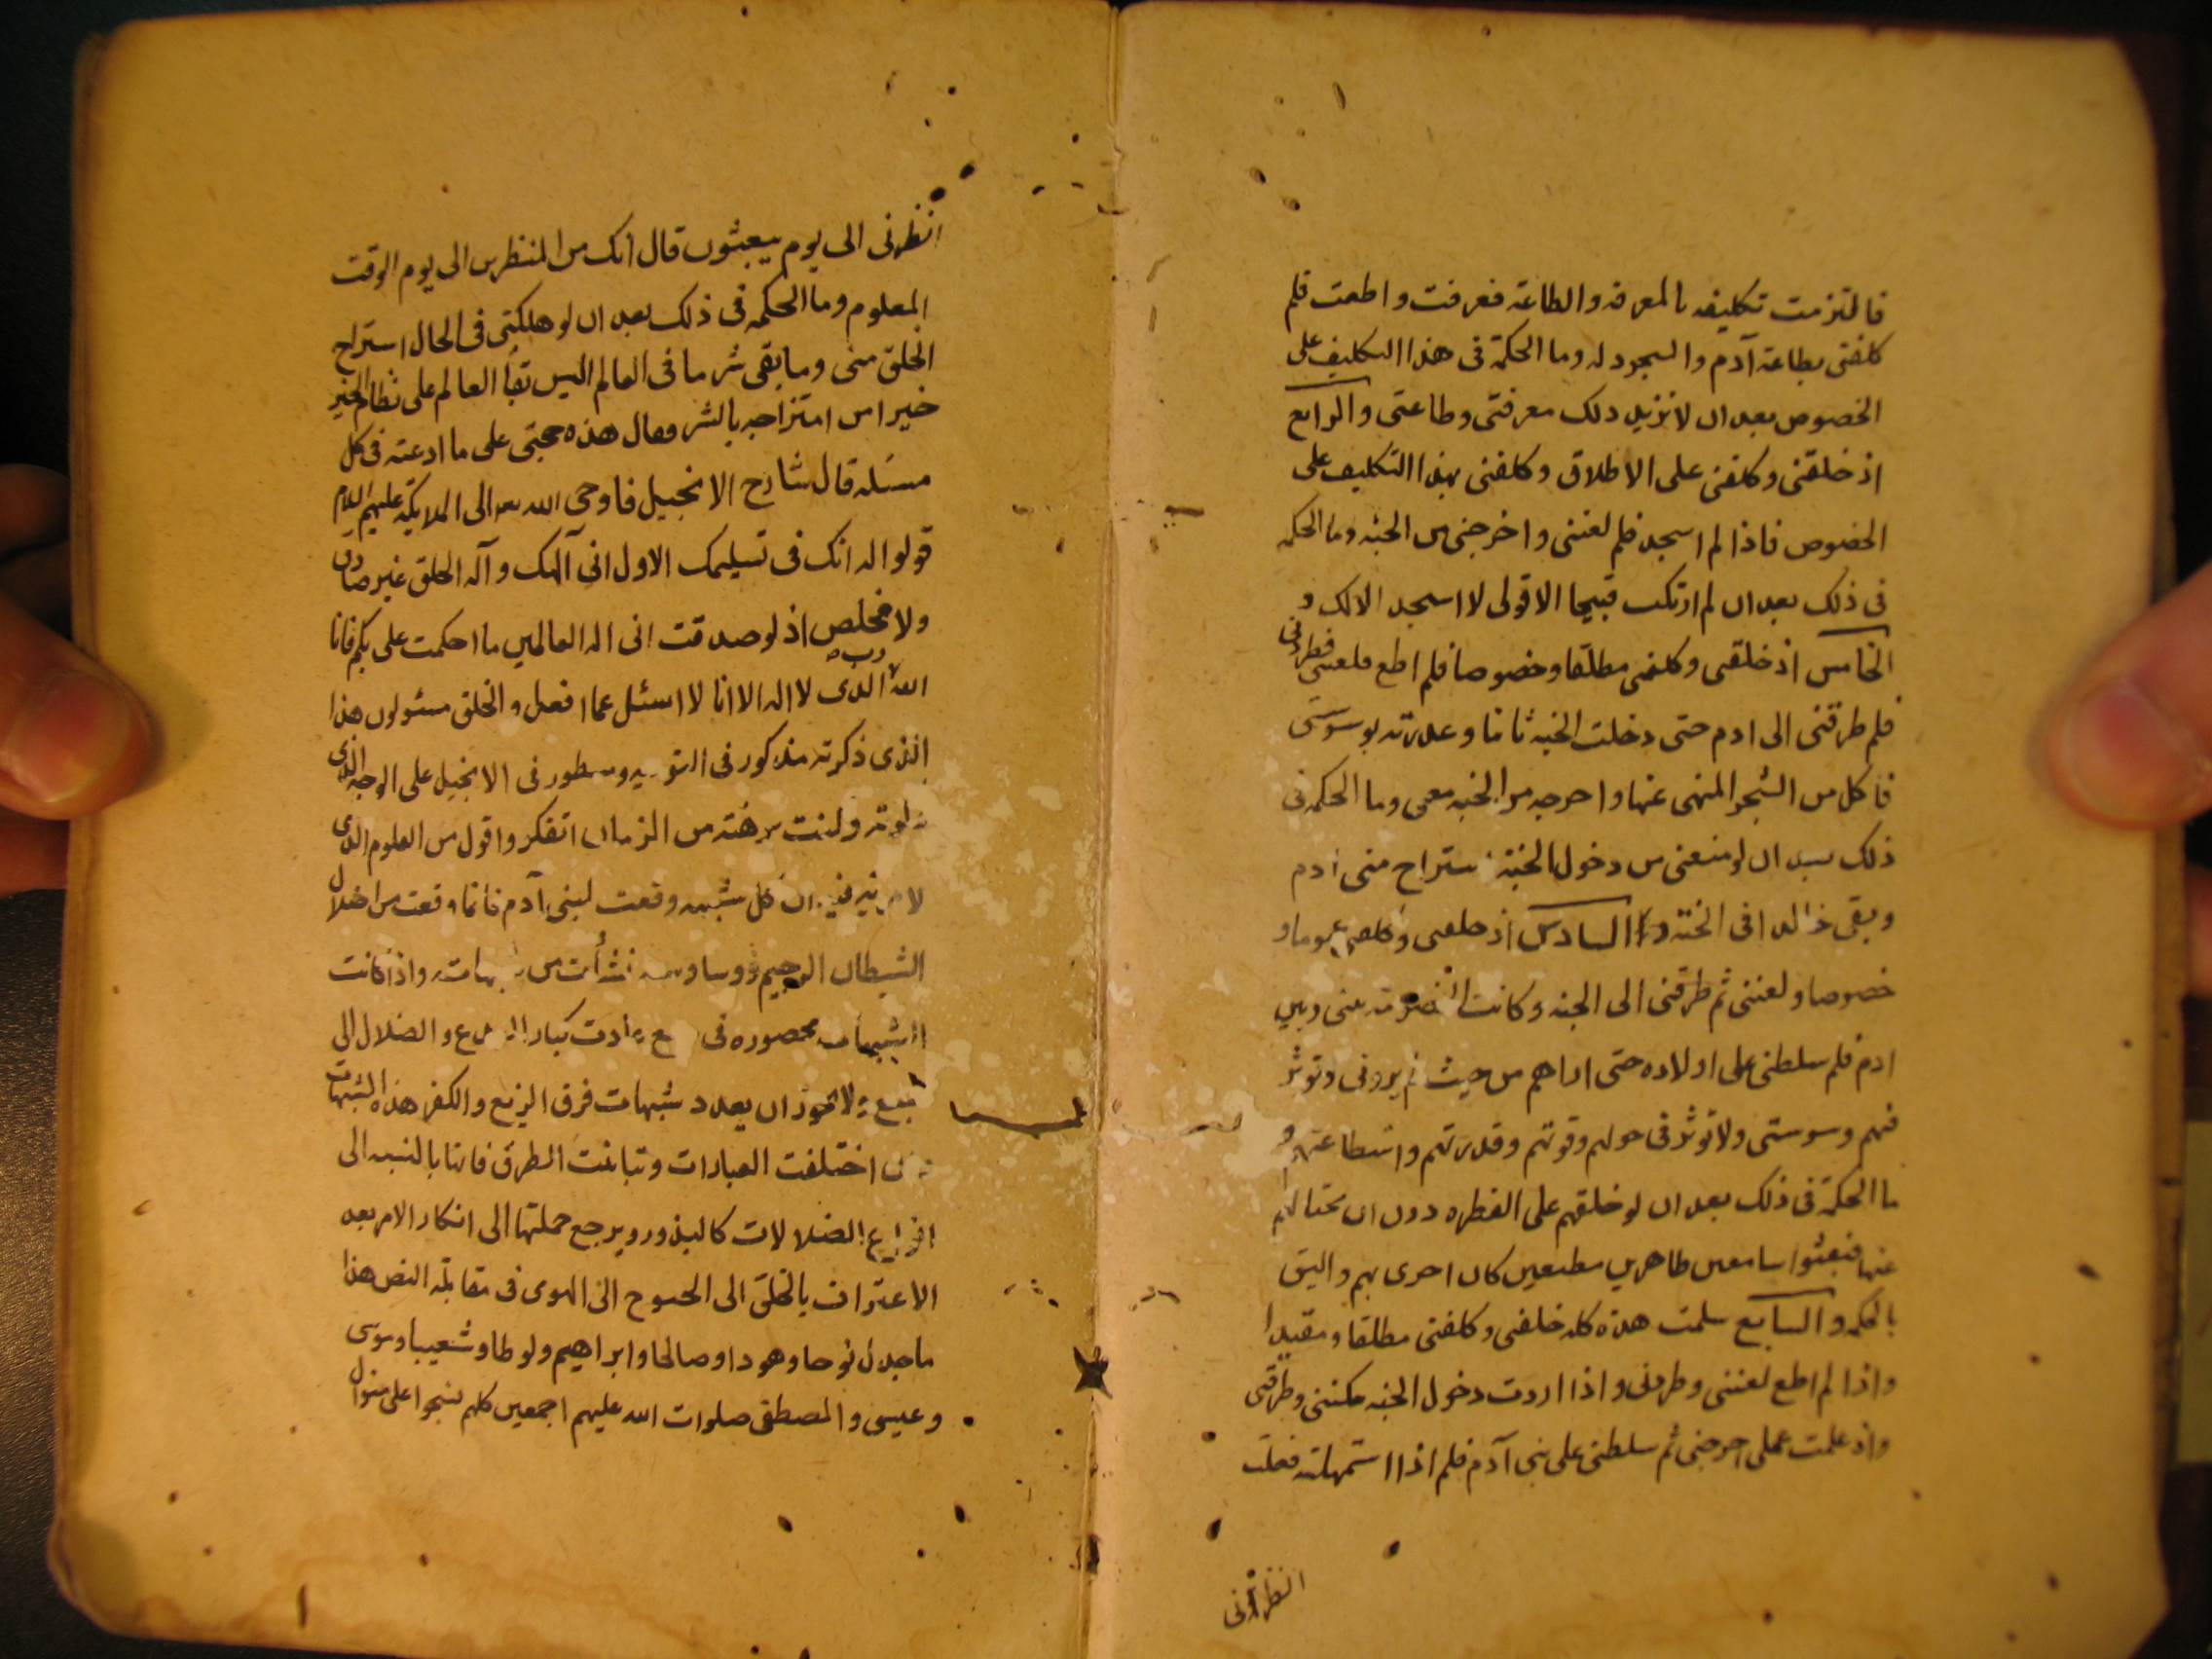 فالتزمت تكليفه بالمعرفة والطاعة فعرفت واطعت فلم
كلفنى بطاعة آدم والسجود له وما الحكمة فى هذا التكليف على
الخصوص بعد ان لا يزيد ذلك معرفتى وطاعتى والرابع
اذ خلقنى وكلفنى على الاطلاق وكلفنى بهذا التكليف على
الخصوص فاذا لم اسجد فلم لعننى واخرجنى من الجنه وما الحكمه
فى ذلك بعد ان لم ارتكب قبيحا الا قولى لا اسجد الا لك و
الخامس اذ خلقنى وكلفنى مطلقا وخصوصا فلم اطع فلعننى وطردنى
فلم طرقنى الى ادم حتى دخلت الجنه ثانيا وغررته بوسوستى
فاكل من الشجر المنهى عنها واخرجه من الجنه معى وما الحكمه فى
ذلك بعد ان لو منعنى من دخول الجنة استراح منى ادم
وبقى خالدا فى الجنة والسادس اذ خلقنى وكلفنى عموما و
خصوصا ولعننى ثم طرقنى الى الجنه وكانت الخصومة بينى وبين
ادم فلم سلطنى على اولاده حتى اراهم من حيث لا يرونى وتوثر
فيهم وسوستى ولا توثر فى حولهم وقوتهم وقدرتهم واستطاعتهم و
ما الحكمة فى ذلك بعد ان لو خلقهم على الفطره دون ان يحتالهم
عنها فيعيشوا سامعين طاهرين مطيعين كان احرى بهم واليق
بالحكمه والسابع سلمت هذه كله خلقنى وكلفنى مطلقا ومقيدا
واذا لم اطع لعننى وطردنى واذا اردت دخول الجنه مكننى وطرقنى
واذ علمت عملى اخرجنى ثم سلطنى على بنى آدم فلم اذا استمهلته فعلت
انظرنى
انظرنى الى يوم يبعثون قال انك من المنتظرين الى يوم الوقت
المعلوم وما الحكمه فى ذلك بعد ان لو هلكنى فى الحال استراح
الخلق منى وما بقى شر ما فى العالم اليس بقأ العالم على نظام الخير
خيرا من امتزاجه بالشر وقال هذه حجتى على ما ادعته فى كل
مسئله قال شارح الانجيل فاوحى الله تعه الى الملايكة عليهم السلام
قولوا له انك فى تسليمك الاول انى آلهك وآله الخلق غير صادق
ولا مخلص اذ لو صدقت انى اله العالمين ما احكمت على بكم فانا
الله الذى لا اله الا انا لا اسئل عما افعل والخلق مسئولون هذا
الذى ذكرته مذكور فى التوريه ومسطور فى الانجيل على الوجه الذى
ذكرته وكنت برهة من الزمان اتفكر واقول من المعلوم الذى
لا مرية فيه ان كل شبهه وقعت لبنى آدم فانما وقعت من اضلال
الشيطان الرجيم ووساوسه نشأت من شبهاته واذا كانت
الشبهات محصوره فى سبع عادت كبار البدع والضلال الى
سبع ولا يجوز ان يعدد شبهات فرق الزيغ والكفر هذه الشبهات
وان اختلفت العبارات وتباينت الطرق فانها بالنسبه الى
انواع الضلالات كالبذور ويرجع جملتها الى انكار الامر بعد
الاعتراف بالخلق الى الجنوح الى الهوى فى مقابلة النص هذا
ما جدل نوحا وهودا وصالحا وابراهيم ولوطا وشعيبا وموسى
وعيسى والمصطفى صلوات الله عليهم اجمعين كلهم نسجوا على منوال